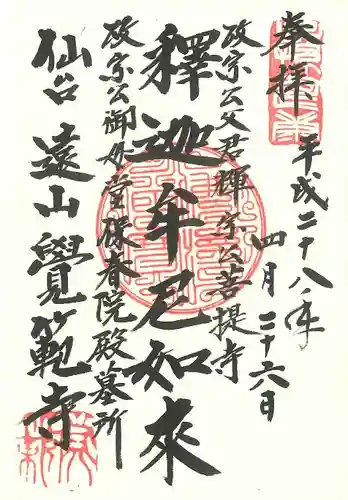 奉拝
平成二十八年
四月二十六日
政宗公父君輝宗公菩提寺
釋迦牟尼如來
政宗公御母堂保春院殿墓所
仙台遠山覺範寺